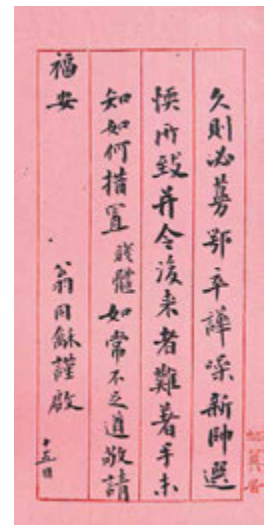 久則必募鄂卒譁噪新帥選
愞所致并令後來者難著手未
知如何措置賤體如常不乏道敬請
福安
翁同龢謹啟
十五日